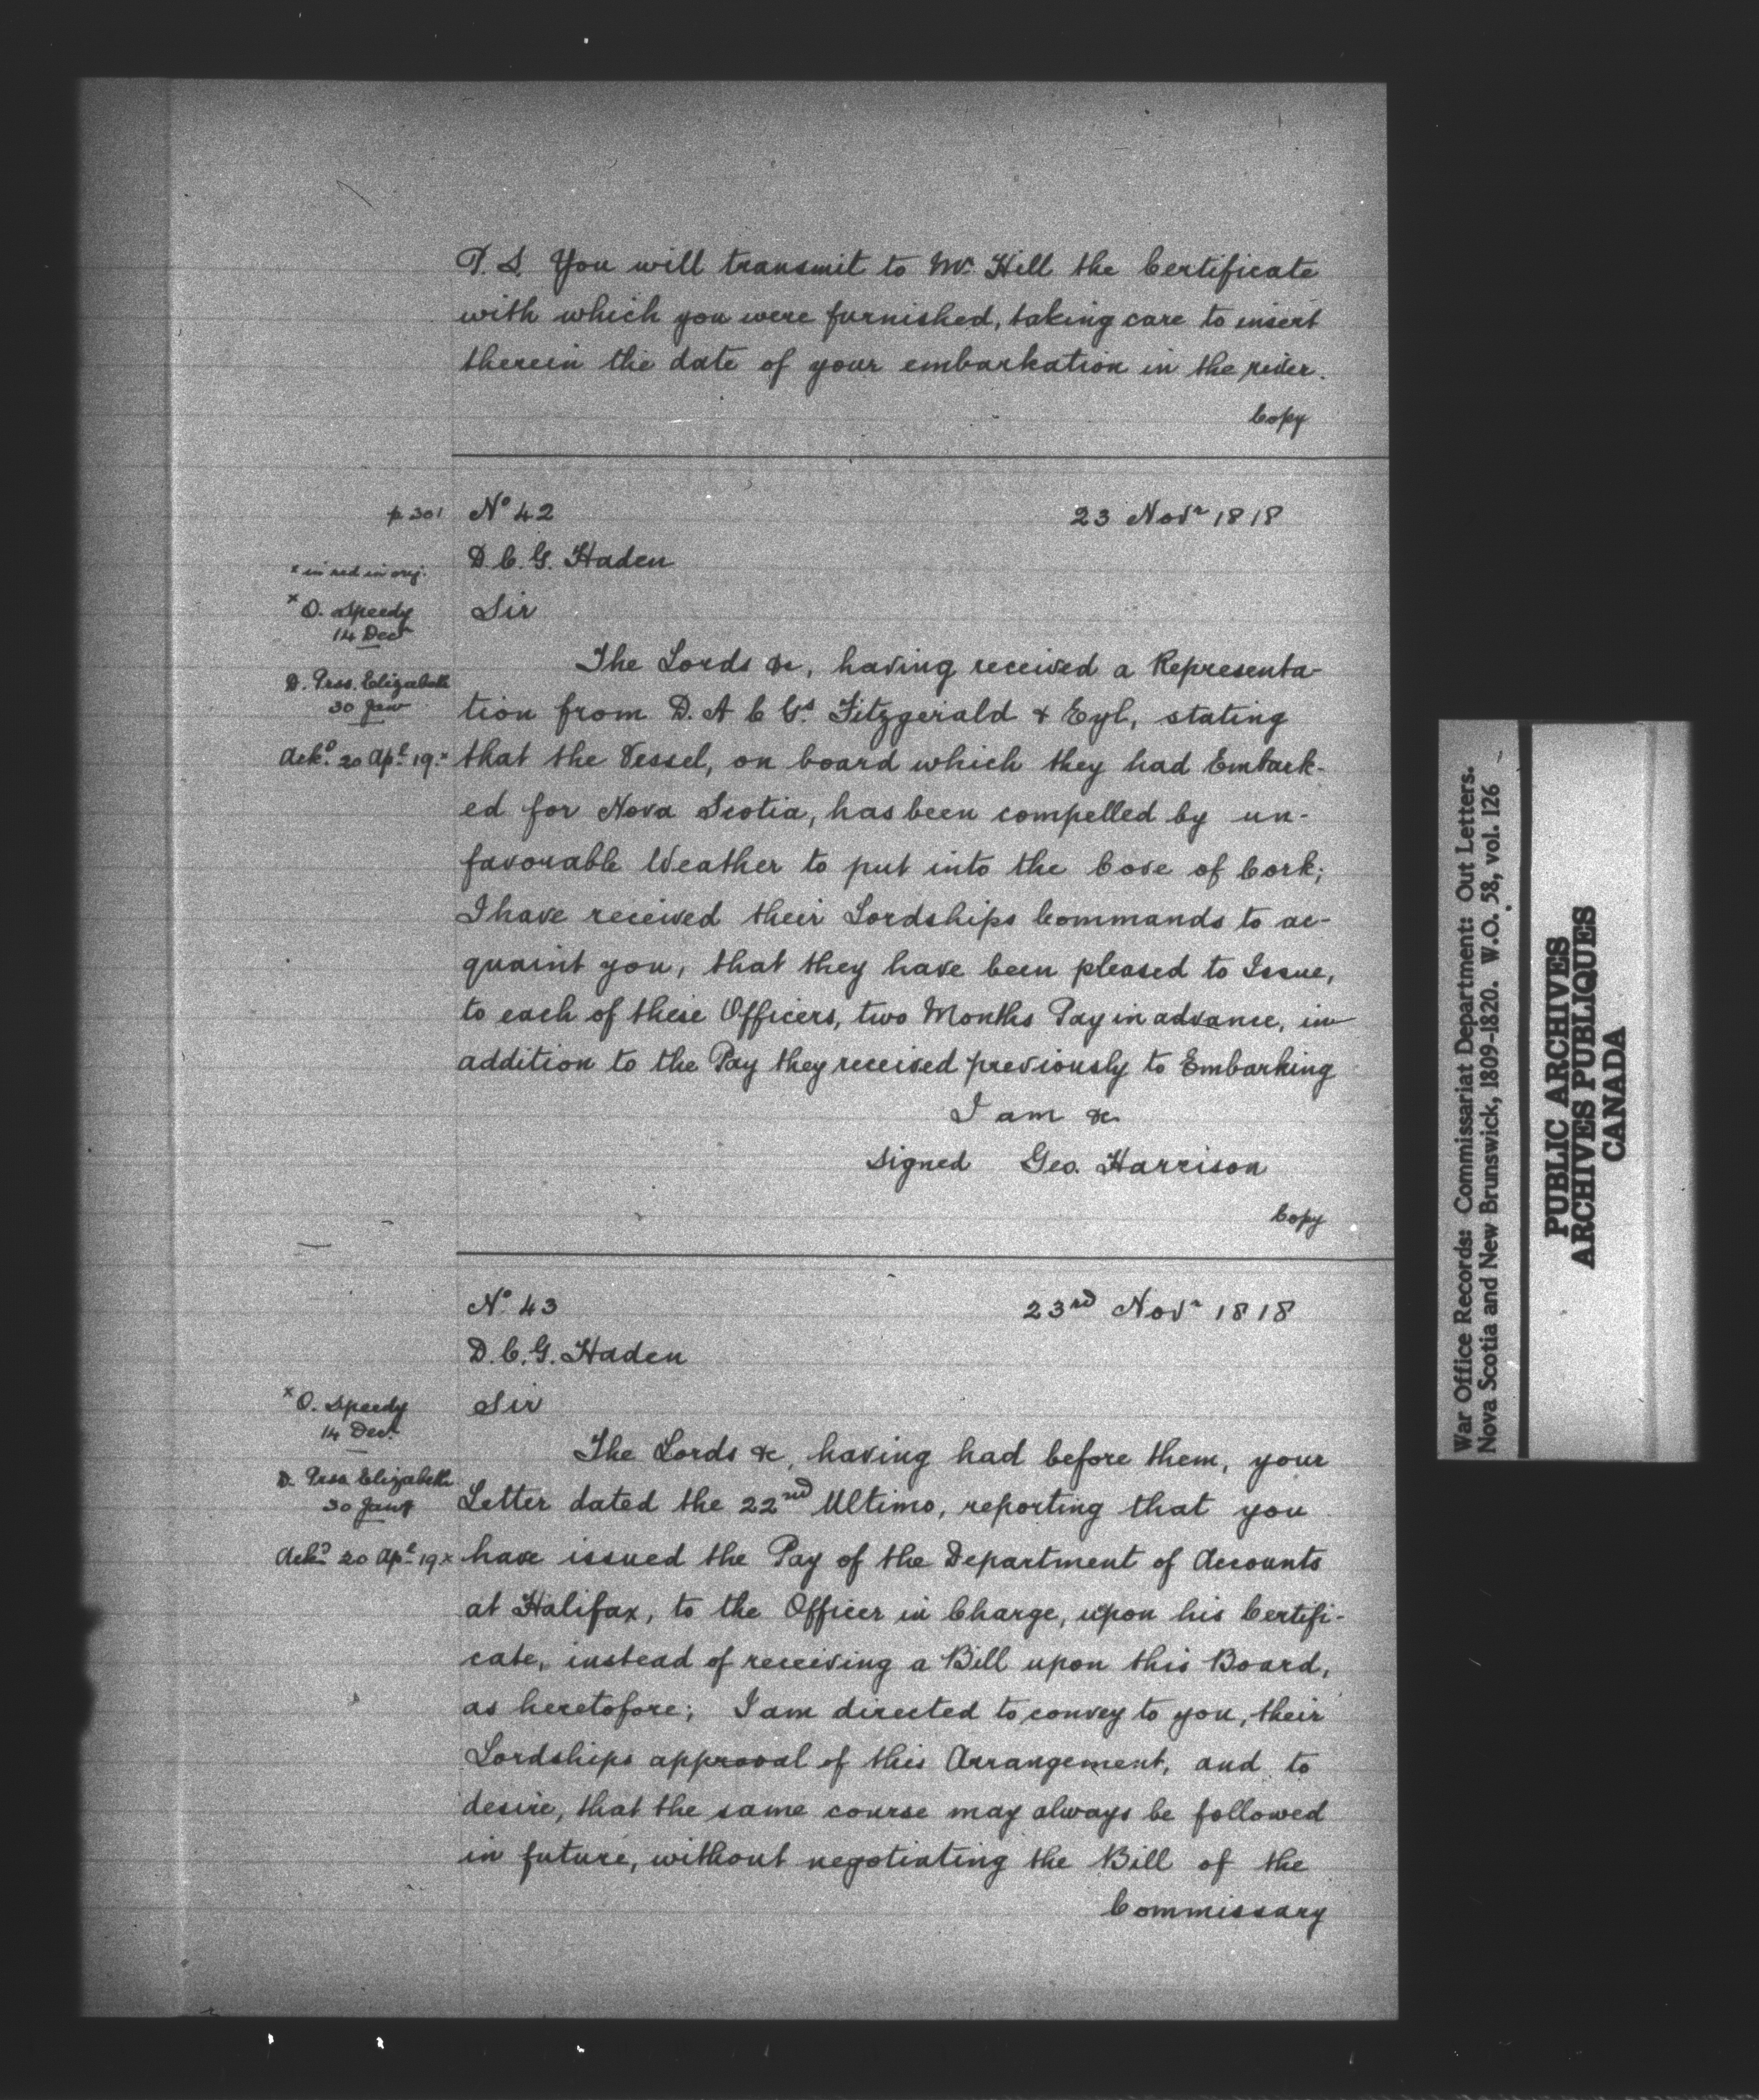 P.S. You will transmit to Mr. Hill the Certificate
with which you were furnished, taking care to insert
therein the date of your embarkation in the river.
Copy
p 301
No 42
23 Novr 1818
D.C.G. Haden
x in red in orig.
x O. Speedy
14 Decr
Sir
D. Prss. Elizabeth
30 Jany
Ackd. 20 Apl. 19. x
The Lords &c, having received a Representa-
tion from D. A C Gs. Fitzgerald & Eyl, stating
that the Vessel, on board which they had Embark-
ed for Nova Scotia, has been compelled by un-
favorable Weather to put into the Cove of Cork;
I have received their Lordships Commands to ac-
quaint you, that they have been pleased to Issue,
to each of these Officers, two Months Pay in advance, in
addition to the Pay they received previously to Embarking
I am &c
Signed Geo. Harrison
Copy
No. 43
23rd Novr 1818
D.C.G. Haden
x O. Speedy
14 Decr.
Sir
D. Prss Elizabeth
30 Jany
Ackd. 20 Apl. 19 x
The Lords &c, having had before them, your
Letter dated the 22nd Ultimo, reporting that you
have issued the Pay of the Department of Accounts
at Halifax, to the Officer in Charge, upon his Certifi-
cate, instead of receiving a Bill upon this Board,
as heretofore; I am directed to convey to you, their
Lordships approval of this Arrangement, and to
desire, that the same course may always be followed
in future, without negotiating the Bill of the
Commissary
War Office Records: Commissariat Department: Out Letters.
Nova Scotia and New Brunswick, 1809-1820. W.O. 58, vol. 126
PUBLIC ARCHIVES
ARCHIVES PUBLIQUES
CANADA